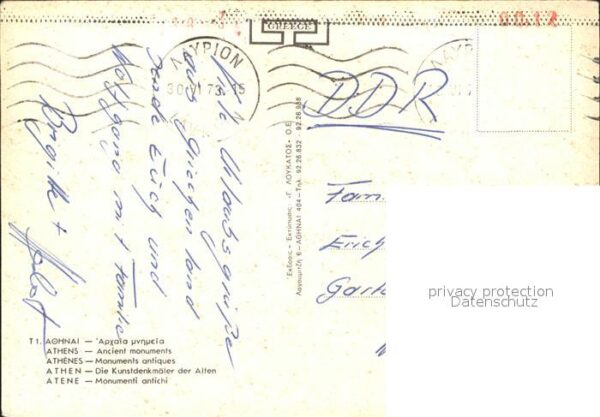 GREECE
0012
ΛΑΥΡΙΟΝ
30 VI 73. 15
ΛΑΥΡ
DDR
Viele Urlaubsgrüße
aus Griechenland
sendet Euch und
Wolfgang mit Familie
Brigitte +
Fam
Erich
privacy protection
Datenschutz
Ἔκδοσις - Ἐκτύπωσις: «Γ. ΛΟΥΚΑΤΟΣ» Ο.Ε.
6 - ΑΘΗΝΑΙ 404 - Τηλ. 92.26.832 - 92.26.988
T 1. ΑΘΗΝΑΙ — Ἀρχαῖα μνημεῖα
ATHENS — Ancient monuments
ATHÈNES — Monuments antiques
ATHEN — Die Kunstdenkmäler der Alten
ATENE — Monumenti antichi